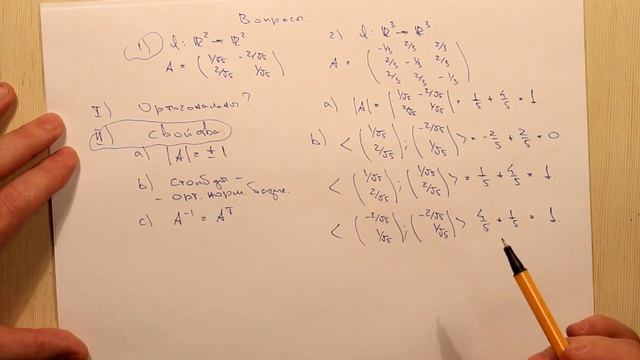 Вопросы.
1) l: ℝ² → ℝ²
A = ( 1/√5 -2/√5
2/√5 1/√5 )
I) Ортогональны?
II) Свойства.
a) |A| = ±1
b) Столбцы -
- орт. норм. базис.
c) A⁻¹ = Aᵀ
2) l: ℝ³ → ℝ³
A = ( -1/3 2/3 2/3
2/3 -1/3 2/3
2/3 2/3 -1/3 )
a) |A| = | 1/√5 -2/√5
2/√5 1/√5 | = 1/5 + 4/5 = 1.
b) < ( 1/√5
2/√5 ) ; ( -2/√5
1/√5 ) > = -2/5 + 2/5 = 0
< ( 1/√5
2/√5 ) ; ( 1/√5
2/√5 ) > = 1/5 + 4/5 = 1.
< ( -2/√5
1/√5 ) ; ( -2/√5
1/√5 ) > 4/5 + 1/5 = 1.